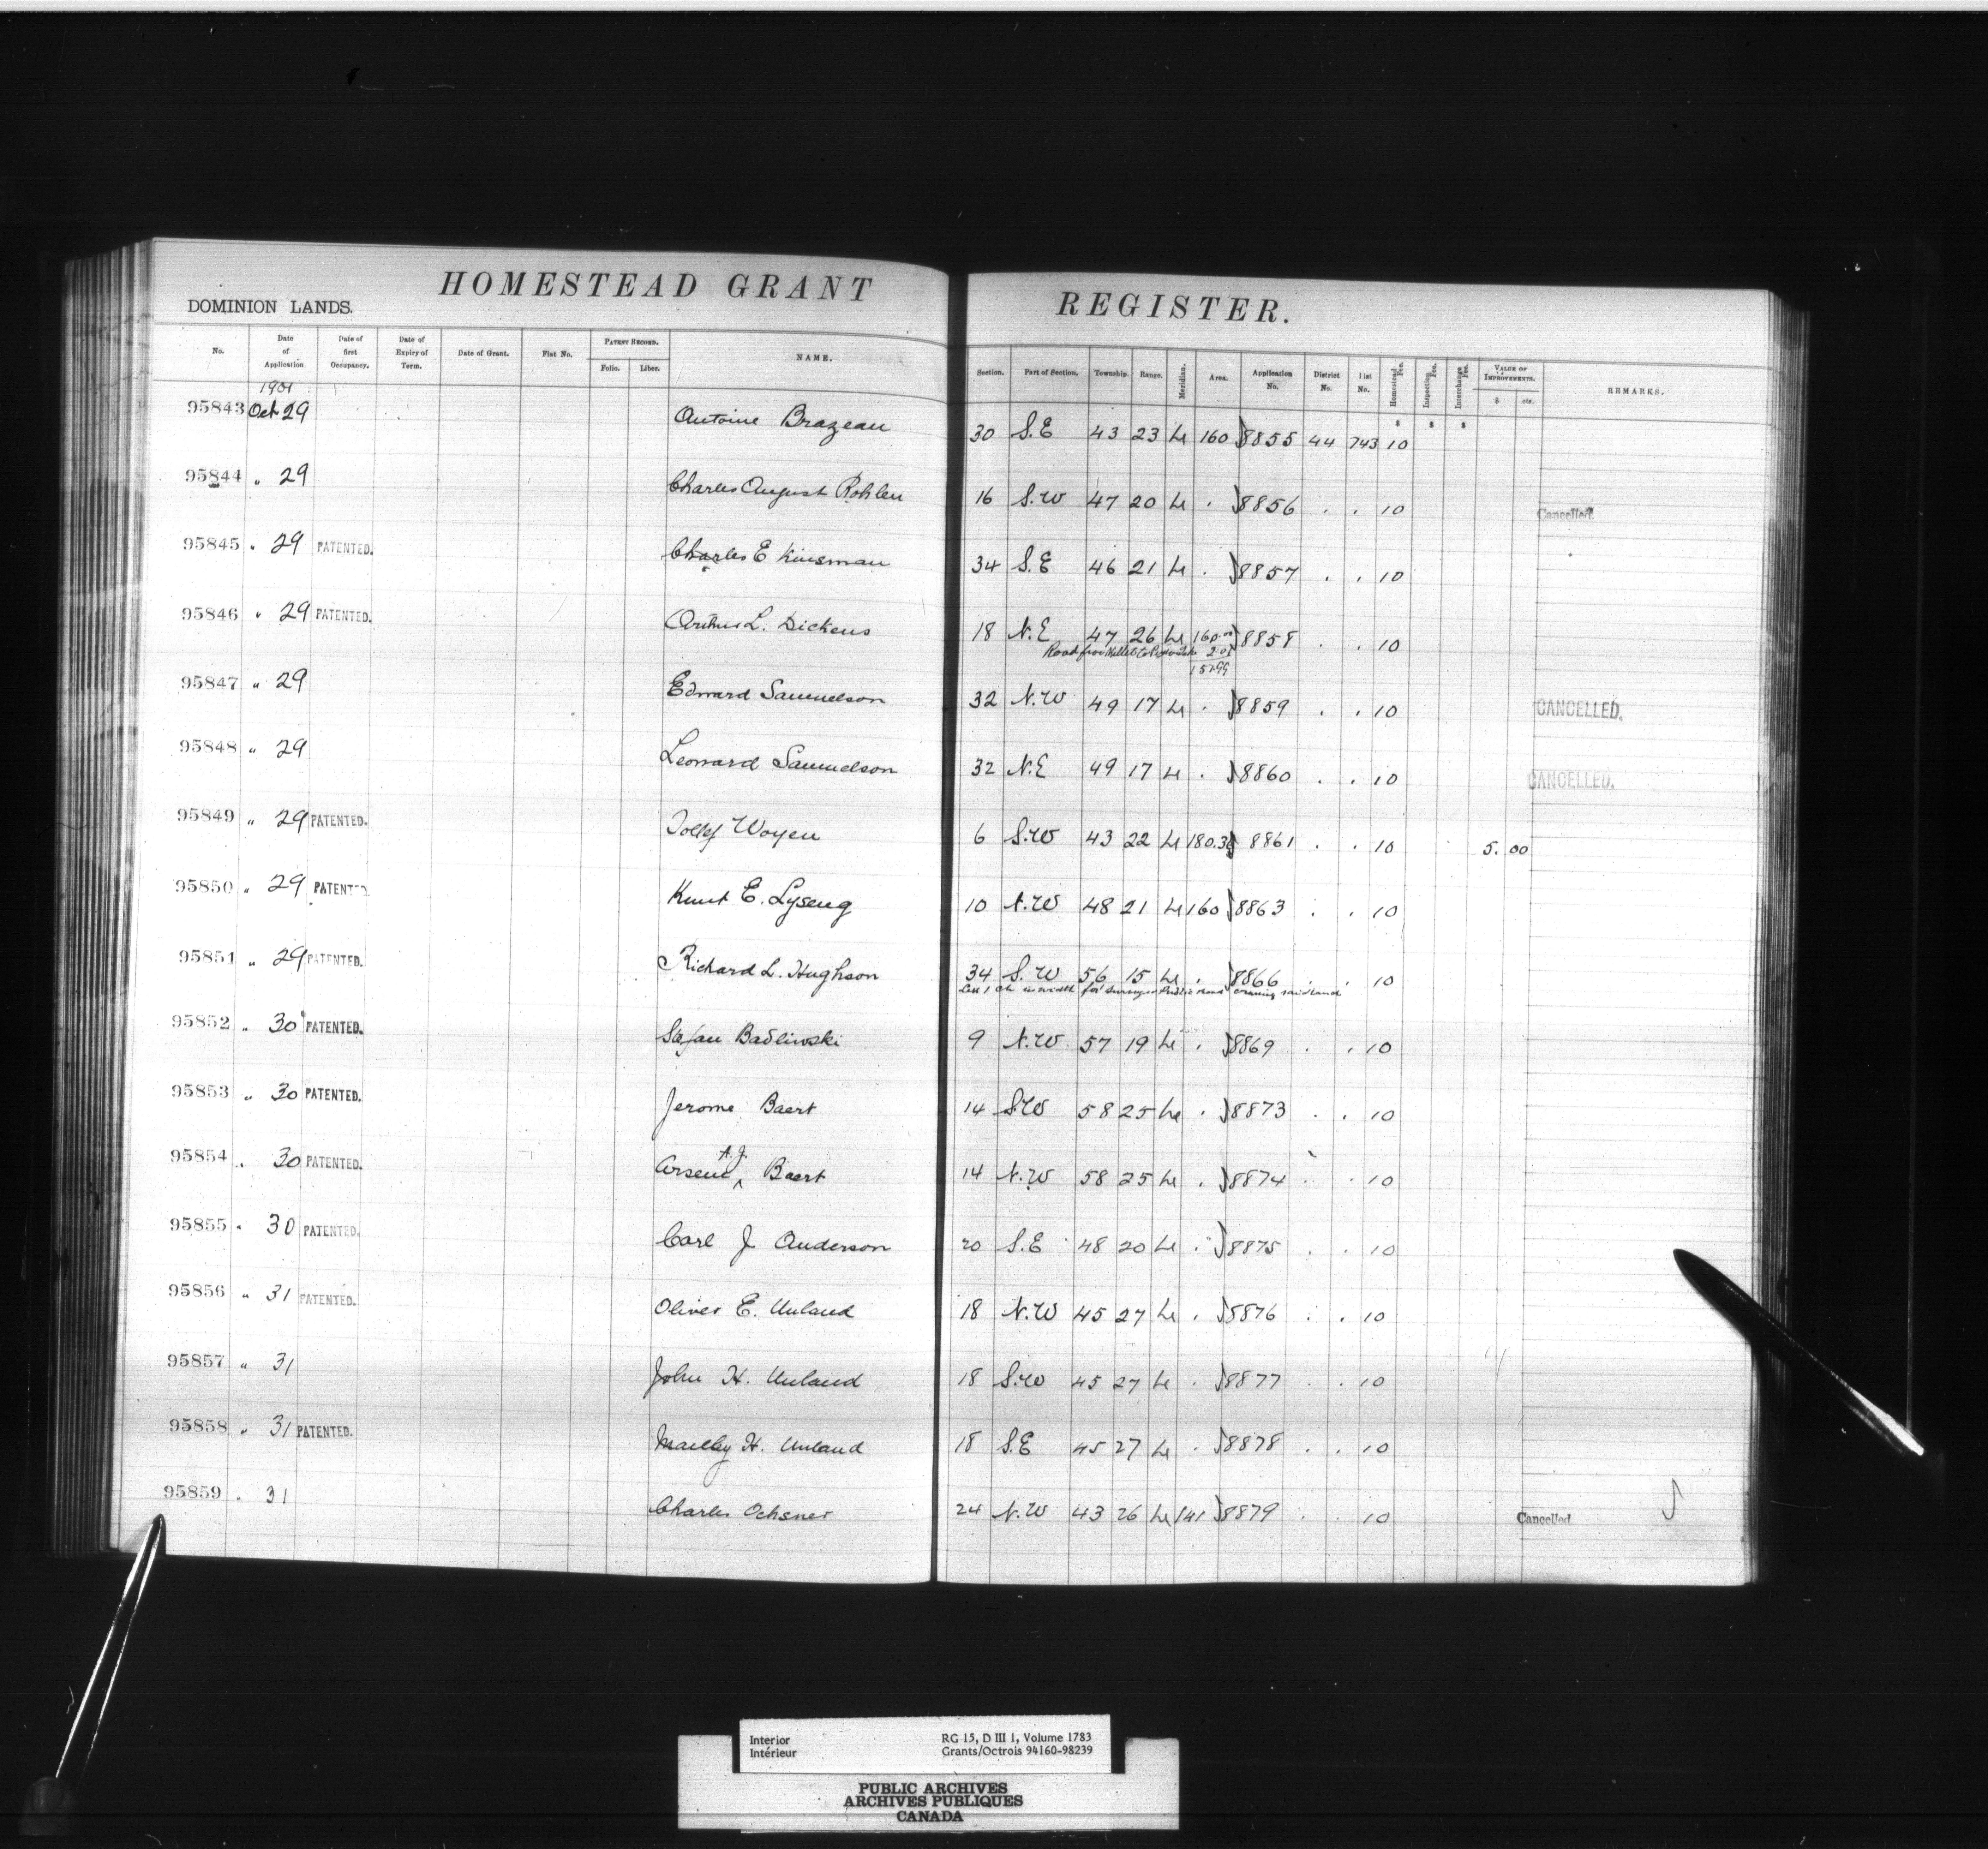 HOMESTEAD GRANT REGISTER.
DOMINION LANDS.
No. Date of Application. Date of first Occupancy. Date of Expiry of Term. Date of Grant. Fiat No. PATENT RECORD. Folio. Liber. NAME. Section. Part of Section. Township. Range. Meridian. Area. Application No. District No. List No. Homestead Fee. Inspection Fee. Interchange Fee. VALUE OF IMPROVEMENTS. $ cts. REMARKS.
1901
95843 Oct 29 Antoine Brazeau 30 S.E 43 23 4 160 J8855 44 743 10
95844 " 29 Charles August Rohlen 16 S.W 47 20 4 . J8856 . . 10 Cancelled.
95845 " 29 PATENTED. Charles E Kinsman 34 S.E 46 21 4 . J8857 . . 10
95846 " 29 PATENTED. Arthur L. Dickens 18 N.E 47 26 4 160.00 J8858 . . 10
Road from 2.01
157.99
95847 " 29 Edward Samuelson 32 N.W 49 17 4 . J8859 . . 10 CANCELLED.
95848 " 29 Leonard Samuelson 32 N.E 49 17 4 . J8860 . . 10 CANCELLED.
95849 " 29 PATENTED. Tollef Woyen 6 S.W 43 22 4 180.3 J8861 . . 10 5. 00
95850 " 29 PATENTED Knut E. Lyseng 10 N.W 48 21 4 160 J8863 . . 10
95851 " 29 PATENTED. Richard L. Hughson 34 S.W 56 15 4 . J8866 . . 10
Less 1 ch in width for surveyed Public road crossing said land
95852 " 30 PATENTED. Stefan Badliwski 9 N.W. 57 19 4 . J8869 . . 10
95853 " 30 PATENTED. Jerome Baert 14 S.W 58 25 4 . J8873 . . 10
95854 " 30 PATENTED. Arsene A.J. Baert 14 N.W 58 25 4 . J8874 . . 10
95855 " 30 PATENTED. Carl J Anderson 20 S.E 48 20 4 . J8875 . . 10
95856 " 31 PATENTED. Oliver E. Unland 18 N.W 45 27 4 . J8876 . . 10
95857 " 31 John H. Unland 18 S.W 45 27 4 . J8877 . . 10
95858 " 31 PATENTED. H. Unland 18 S.E 45 27 4 . J8878 . . 10
95859 " 31 Charles Ochsner 24 N.W 43 26 4 141 J8879 . . 10 Cancelled.
Interior RG 15, D III 1, Volume 1783
Intérieur Grants/Octrois 94160-98239
PUBLIC ARCHIVES
ARCHIVES PUBLIQUES
CANADA